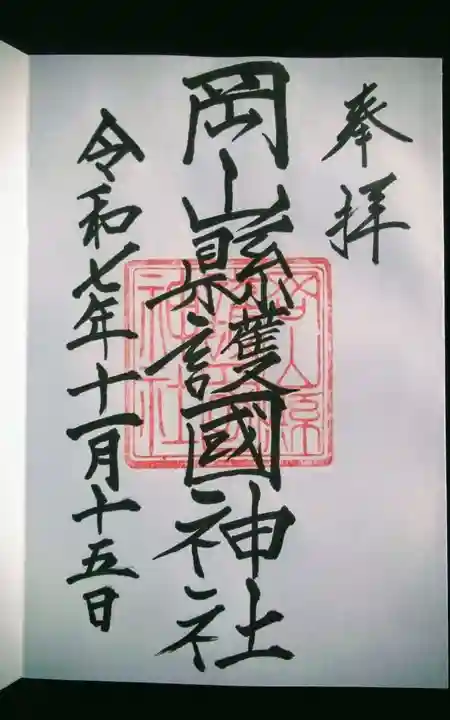 奉拝
岡山縣護國神社
令和七年十一月十五日
岡山縣護國神社